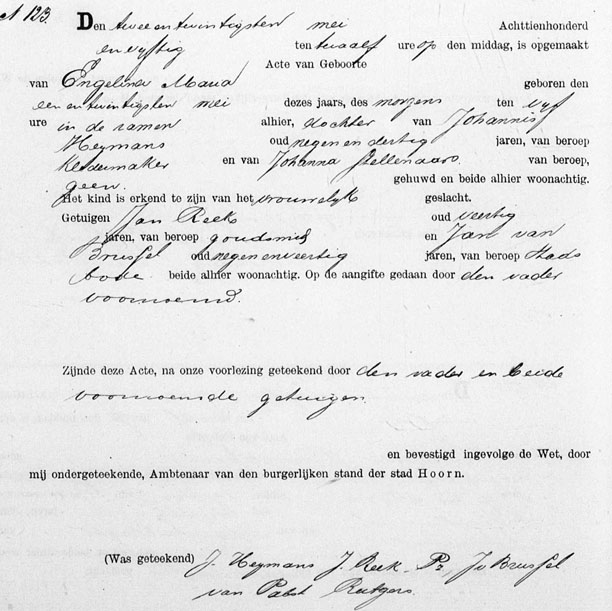 N 123. Den twee en twintigsten mei Achttienhonderd
en vyftig ten twaalf ure op den middag, is opgemaakt
Acte van Geboorte
van Engelina Maria geboren den
een en twintigsten mei dezes jaars, des morgens ten vyf
ure in de ramen alhier, dochter van Johannis
Heymans oud negen en dertig jaren, van beroep
Kleedermaker en van Johanna Stellenaars van beroep,
geen. gehuwd en beide alhier woonachtig.
Het kind is erkend te zijn van het vrouwelyk geslacht.
Getuigen Jan Reek oud veertig
jaren, van beroep goudsmid en Jan van
Brussel oud negen en veertig jaren, van beroep Stads
bode. beide alhier woonachtig. Op de aangifte gedaan door den vader
voornoemd.
Zijnde deze Acte, na onze voorlezing geteekend door den vader en beide
voornoemde getuigen.
en bevestigd ingevolge de Wet, door
mij ondergeteekende, Ambtenaar van den burgerlijken stand der stad Hoorn.
(Was geteekend) J. Heymans J. Reek Pz Jv Brussel
van Pabst Rutgers.